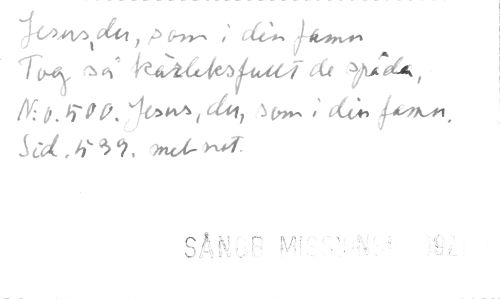 Jesus, du, som i din famn
Tog så kärleksfullt de späda,
N:o. 500. Jesus, du, som i din famn.
Sid. 539. met not.
SÅNGB MISSIONSF 192